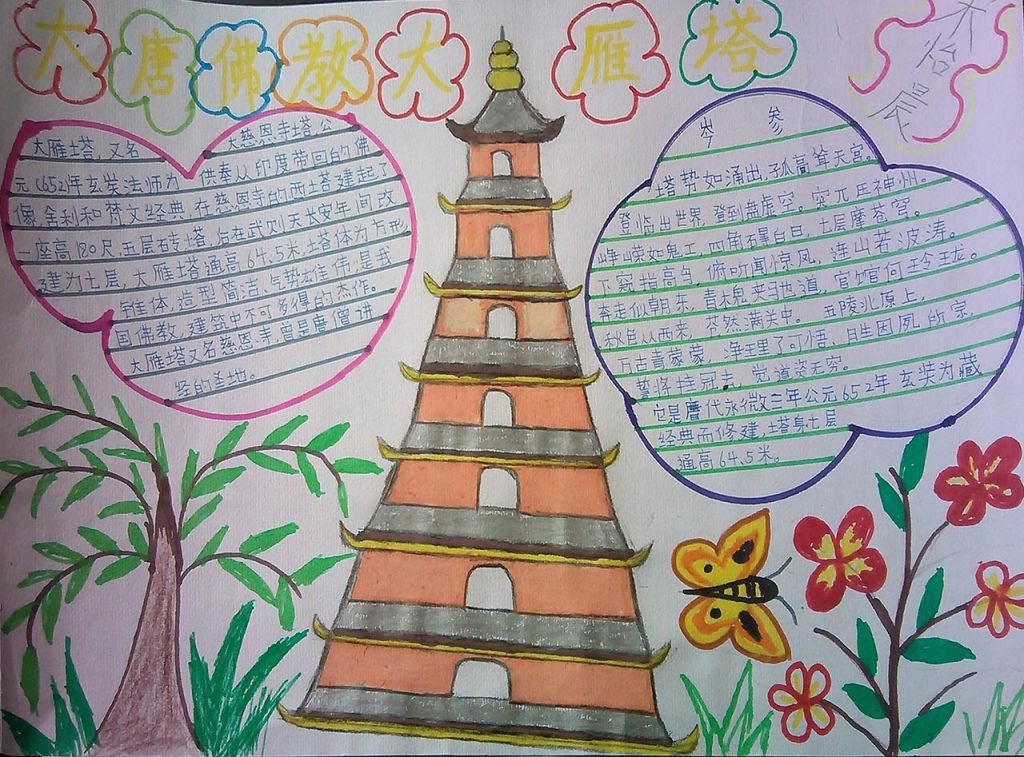 大唐佛教大雁塔
乔怡晨
大雁塔,又名大慈恩寺塔,公
元(652)年玄奘法师为供奉从印度带回的佛
像,舍利和梵文经典,在慈恩寺的西塔建起了
一座高180尺五层砖塔,后在武则天长安年间改
建为七层,大雁塔通高64.5米,塔体为方形
锥体,造型简洁,气势雄伟,是我
国佛教,建筑中不可多得的杰作。
大雁塔又名慈恩寺,曾是唐僧讲
经的圣地。
岑参
塔势如涌出,孤高耸天宫。
登临出世界,登到盘虚空。突兀压神州。
峥嵘如鬼工,四角碍白日,七层摩苍穹。
下窥指高鸟,俯听闻惊风,连山若波涛。
奔走似朝东,青槐夹驰道,宫馆何玲珑。
秋色从西来,苍然满关中。五陵北原上,
万古青蒙蒙,净理了可悟,胜因夙所宗,
誓将挂冠去,觉道资无穷。
它是唐代永微三年公元652年玄装为藏
经典而修建,塔身七层
通高64.5米。